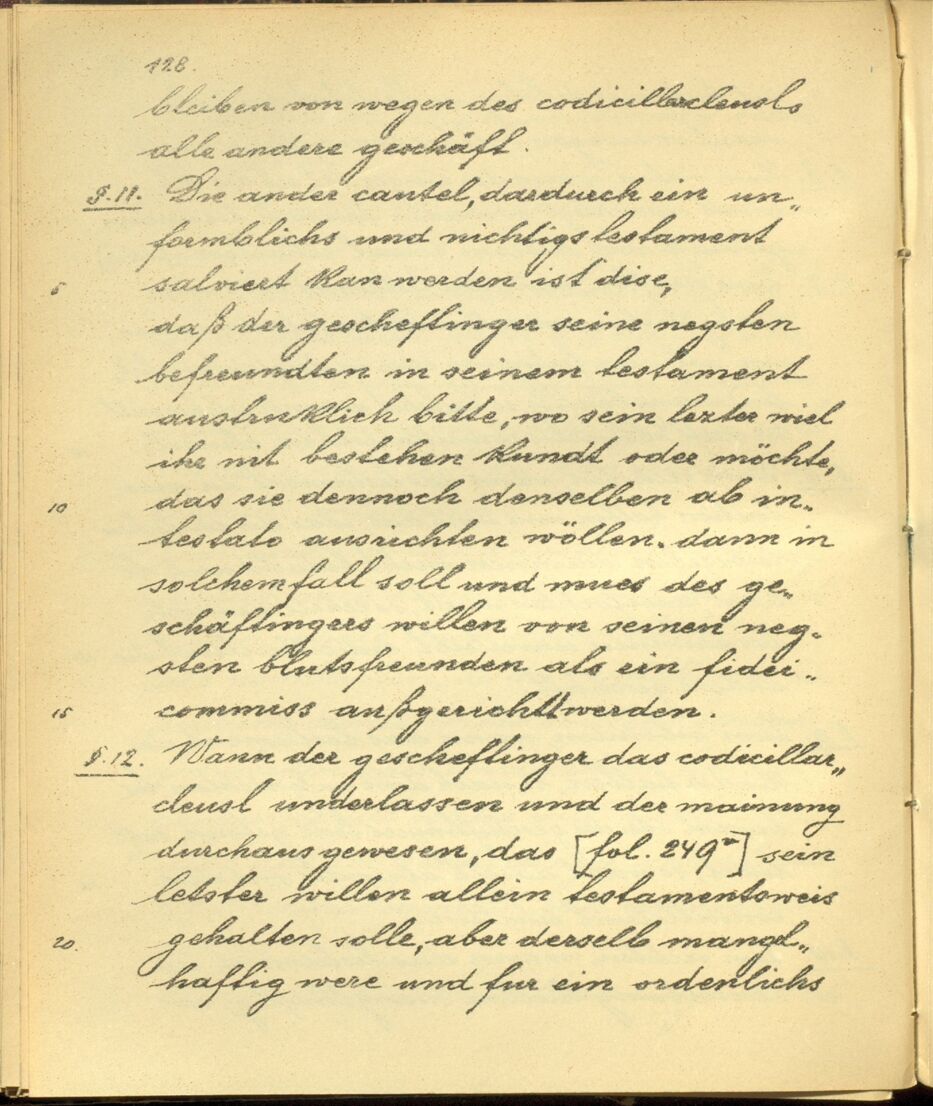 128.
bleiben von wegen des codicillarcleusls
alle andere geschäft.
§. 11. Die ander cautel, dardurch ein un„
formblichs und nichtigs testament
5 salviert kan werden ist dise,
daß der gescheftinger seine negsten
befreundten in seinem testament
austruklich bitte, wo sein lezter wiel
ihe nit bestehen kundt oder möchte,
10 das sie dennoch denselben ab in„
testato ausrichten wöllen. dann in
solchem fall soll und mues des ge„
schäftingers willen von seinen neg„
sten blutsfreunden als ein fidei„
15 commiss außgericht werden.
§. 12. Wann der gescheftinger das codicillar„
cleusl underlassen und der mainung
durchaus gewesen, das [fol. 249v] sein
letster willen allein testamentsweis
20. gehalten solle, aber derselb mangl„
haftig were und fur ein ordenlichs